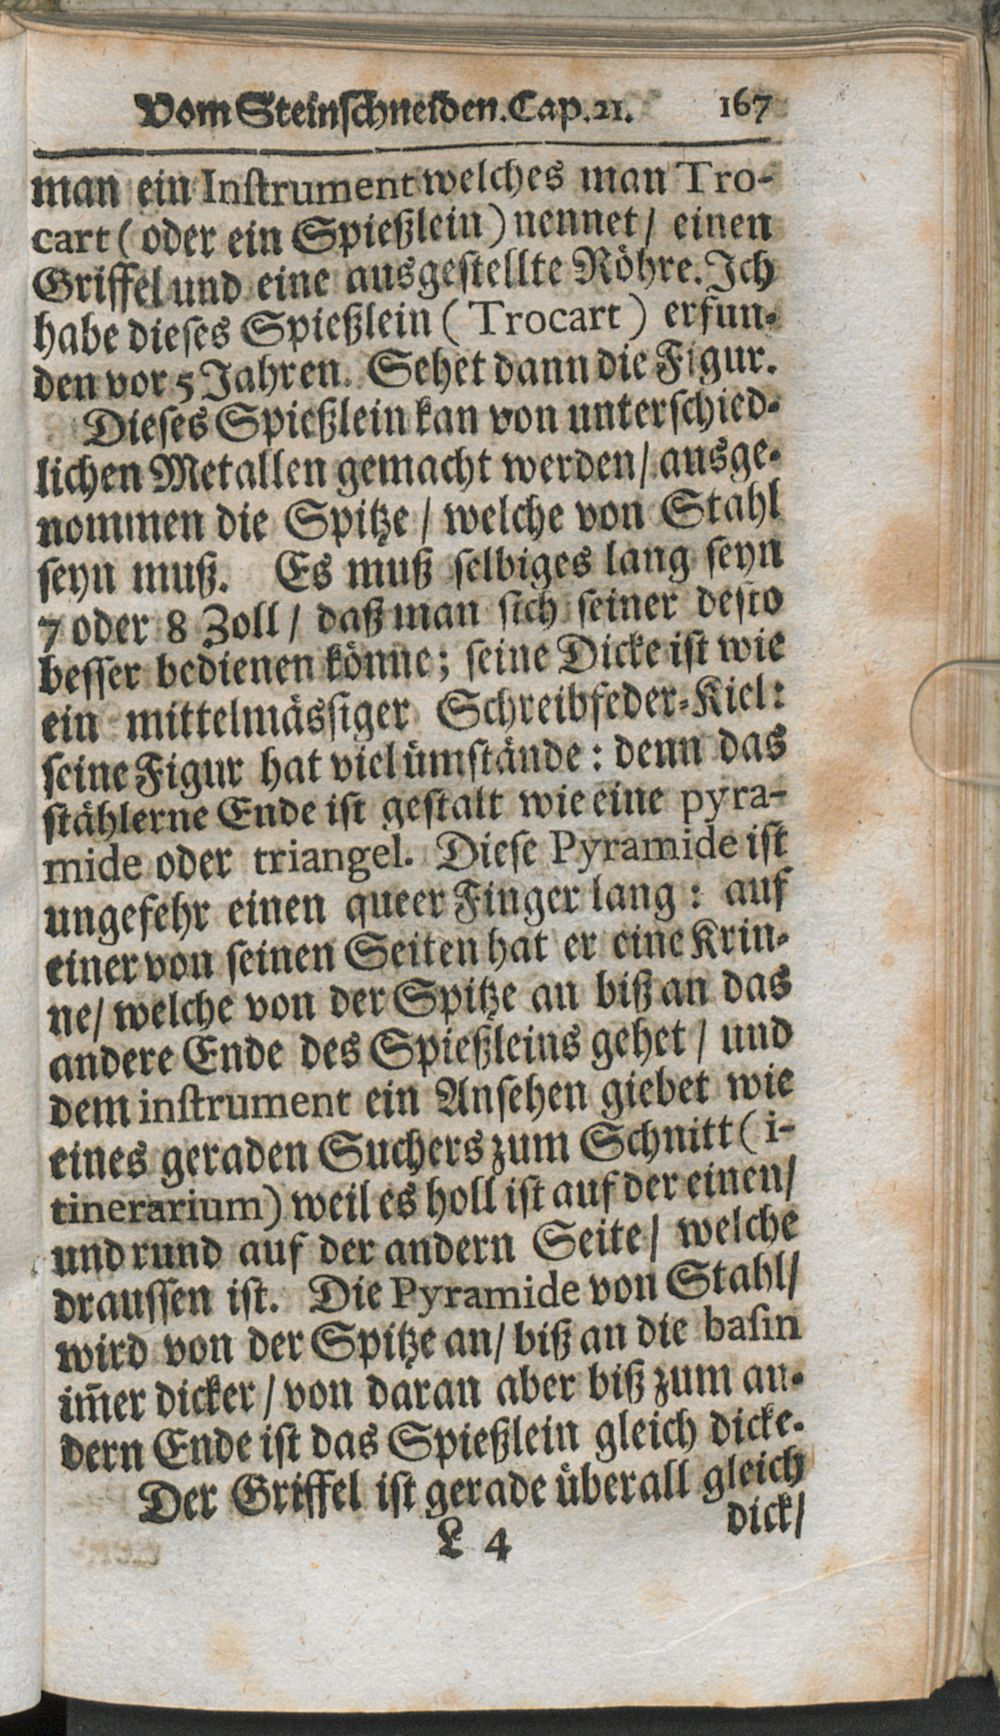 Vom Steinschneiden. Cap. 21. 167
man ein Instrument welches man Tro-
cart (oder ein Spießlein) nennet / einen
Griffel und eine ausgestellte Röhre. Ich
habe dieses Spießlein (Trocart) erfun-
den vor 5 Jahren. Sehet dann die Figur.
Dieses Spießlein kan von unterschied-
lichen Metallen gemacht werden / ausge-
nommen die Spitze / welche von Stahl
seyn muß. Es muß selbiges lang seyn
7 oder 8 Zoll / daß man sich seiner desto
besser bedienen könne; seine Dicke ist wie
ein mittelmässiger Schreibfeder-Kiel:
seine Figur hat viel ümstände: denn das
stählerne Ende ist gestalt wie eine pyra-
mide oder triangel. Diese Pyramide ist
ungefehr einen queer Finger lang: auf
einer von seinen Seiten hat er eine Krin-
ne / welche von der Spitze an biß an das
andere Ende des Spießleins gehet / und
dem instrument ein Ansehen giebet wie
eines geraden Suchers zum Schnitt (i-
tinerarium) weil es holl ist auf der einen /
und rund auf der andern Seite / welche
draussen ist. Die Pyramide von Stahl /
wird von der Spitze an / biß an die basin
im̄er dicker / von daran aber biß zum an-
dern Ende ist das Spießlein gleich dicke.
Der Griffel ist gerade überall gleich
L 4 dick /